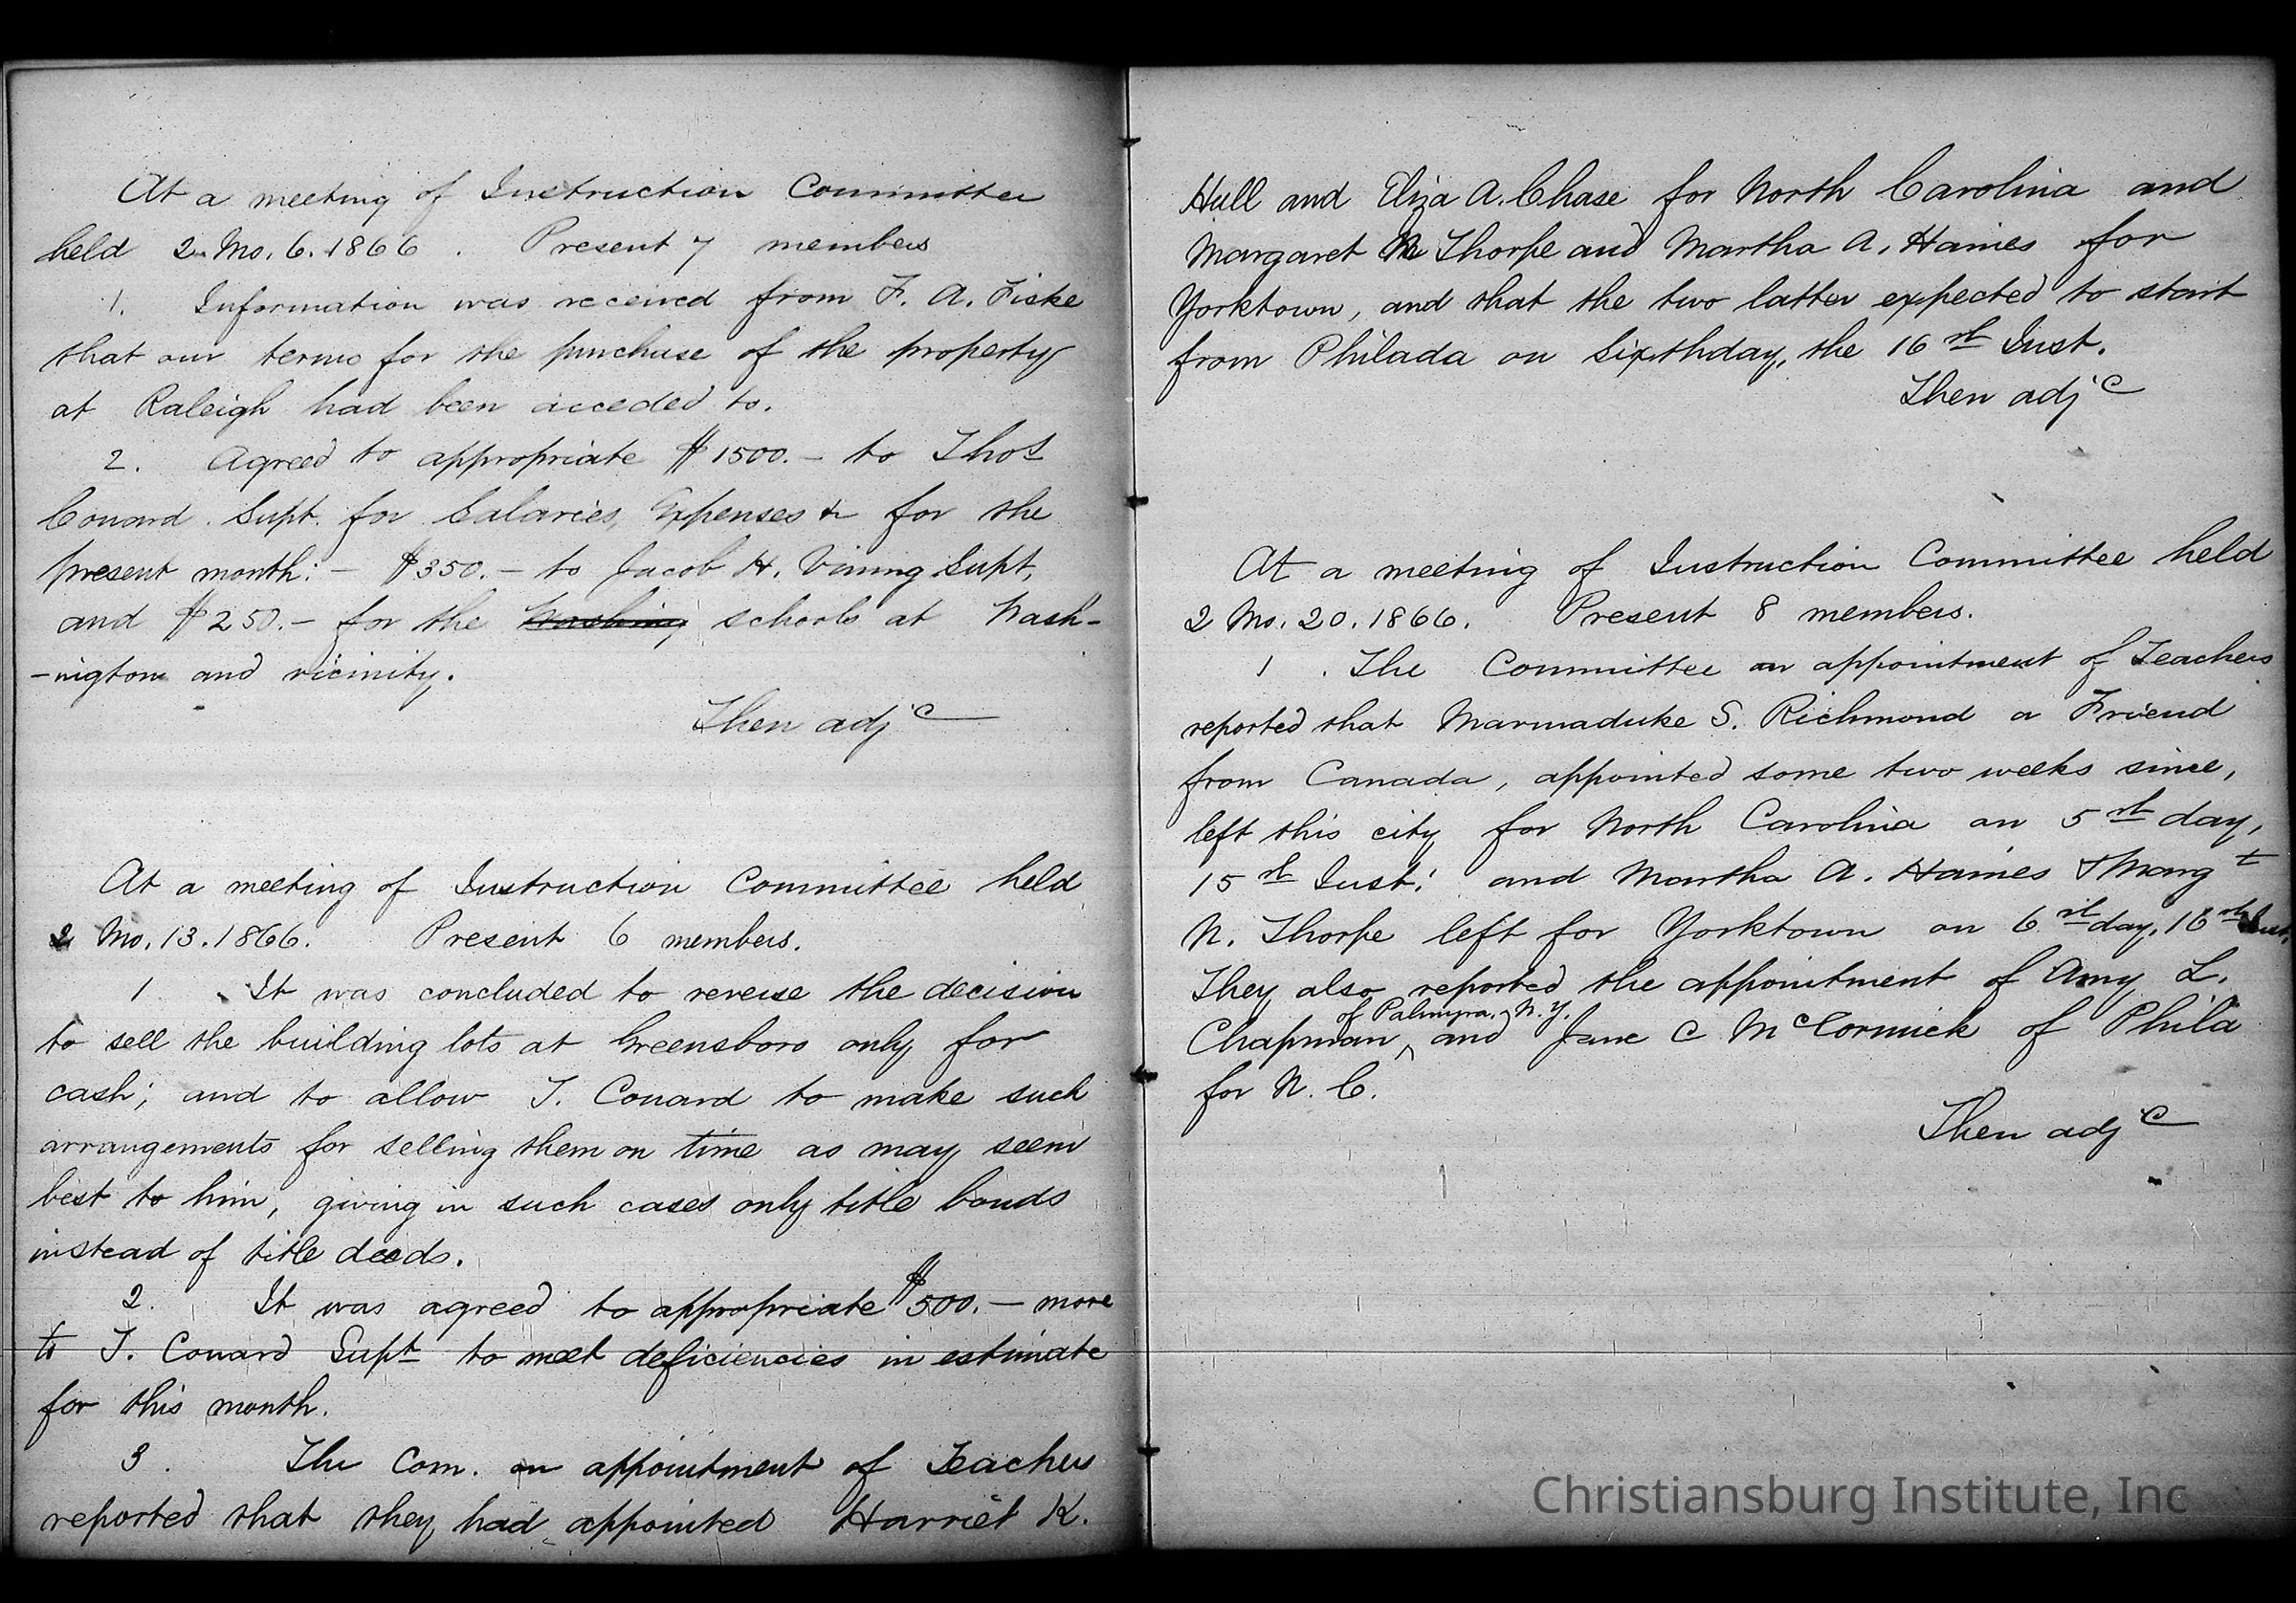 At a meeting of Instruction Committee
held 2 Mo. 6. 1866. Present 7 members
1. Information was received from F. A. Fiske
that our terms for the purchase of the property
at Raleigh had been acceded to.
2. Agreed to appropriate $1500.- to Thos
Conard Supt. for Salaries, Expenses & for the
present month:- $350.- to Jacob H. Vining Supt,
and $250.- for the Washing schools at Wash-
-ington and vicinity.
Then adj'd
At a meeting of Instruction Committee held
2 Mo. 13. 1866. Present 6 members.
1. It was concluded to reverse the decision
to sell the building lots at Greensboro only for
cash; and to allow T. Conard to make such
arrangements for selling them on time as may seem
best to him, giving in such cases only title bonds
instead of title deeds.
2. It was agreed to appropriate $500.- more
to T. Conard Supt to meet deficiencies in estimate
for this month.
3. The Com. on appointment of Teachers
reported that they had appointed Harriet K.
Hull and Eliza A. Chase for North Carolina and
Margaret N Thorpe and Martha A. Haines for
Yorktown, and that the two latter expected to start
from Philada on Sixthday, the 16th Inst.
Then adj'd
At a meeting of Instruction Committee held
2 Mo. 20. 1866. Present 8 members.
1. The Committee on appointment of Teachers
reported that Marmaduke S. Richmond a Friend
from Canada, appointed some two weeks since,
left this city for North Carolina on 5th day,
15th Inst: and Martha A. Haines & Margt
N. Thorpe left for Yorktown on 6th day, 16th Inst.
They also reported the appointment of Amy L.
of Palmyra, N.Y.
Chapman ^ and Jane C McCormick of Phila
for N. C.
Then adj'd
Christiansburg Institute, Inc